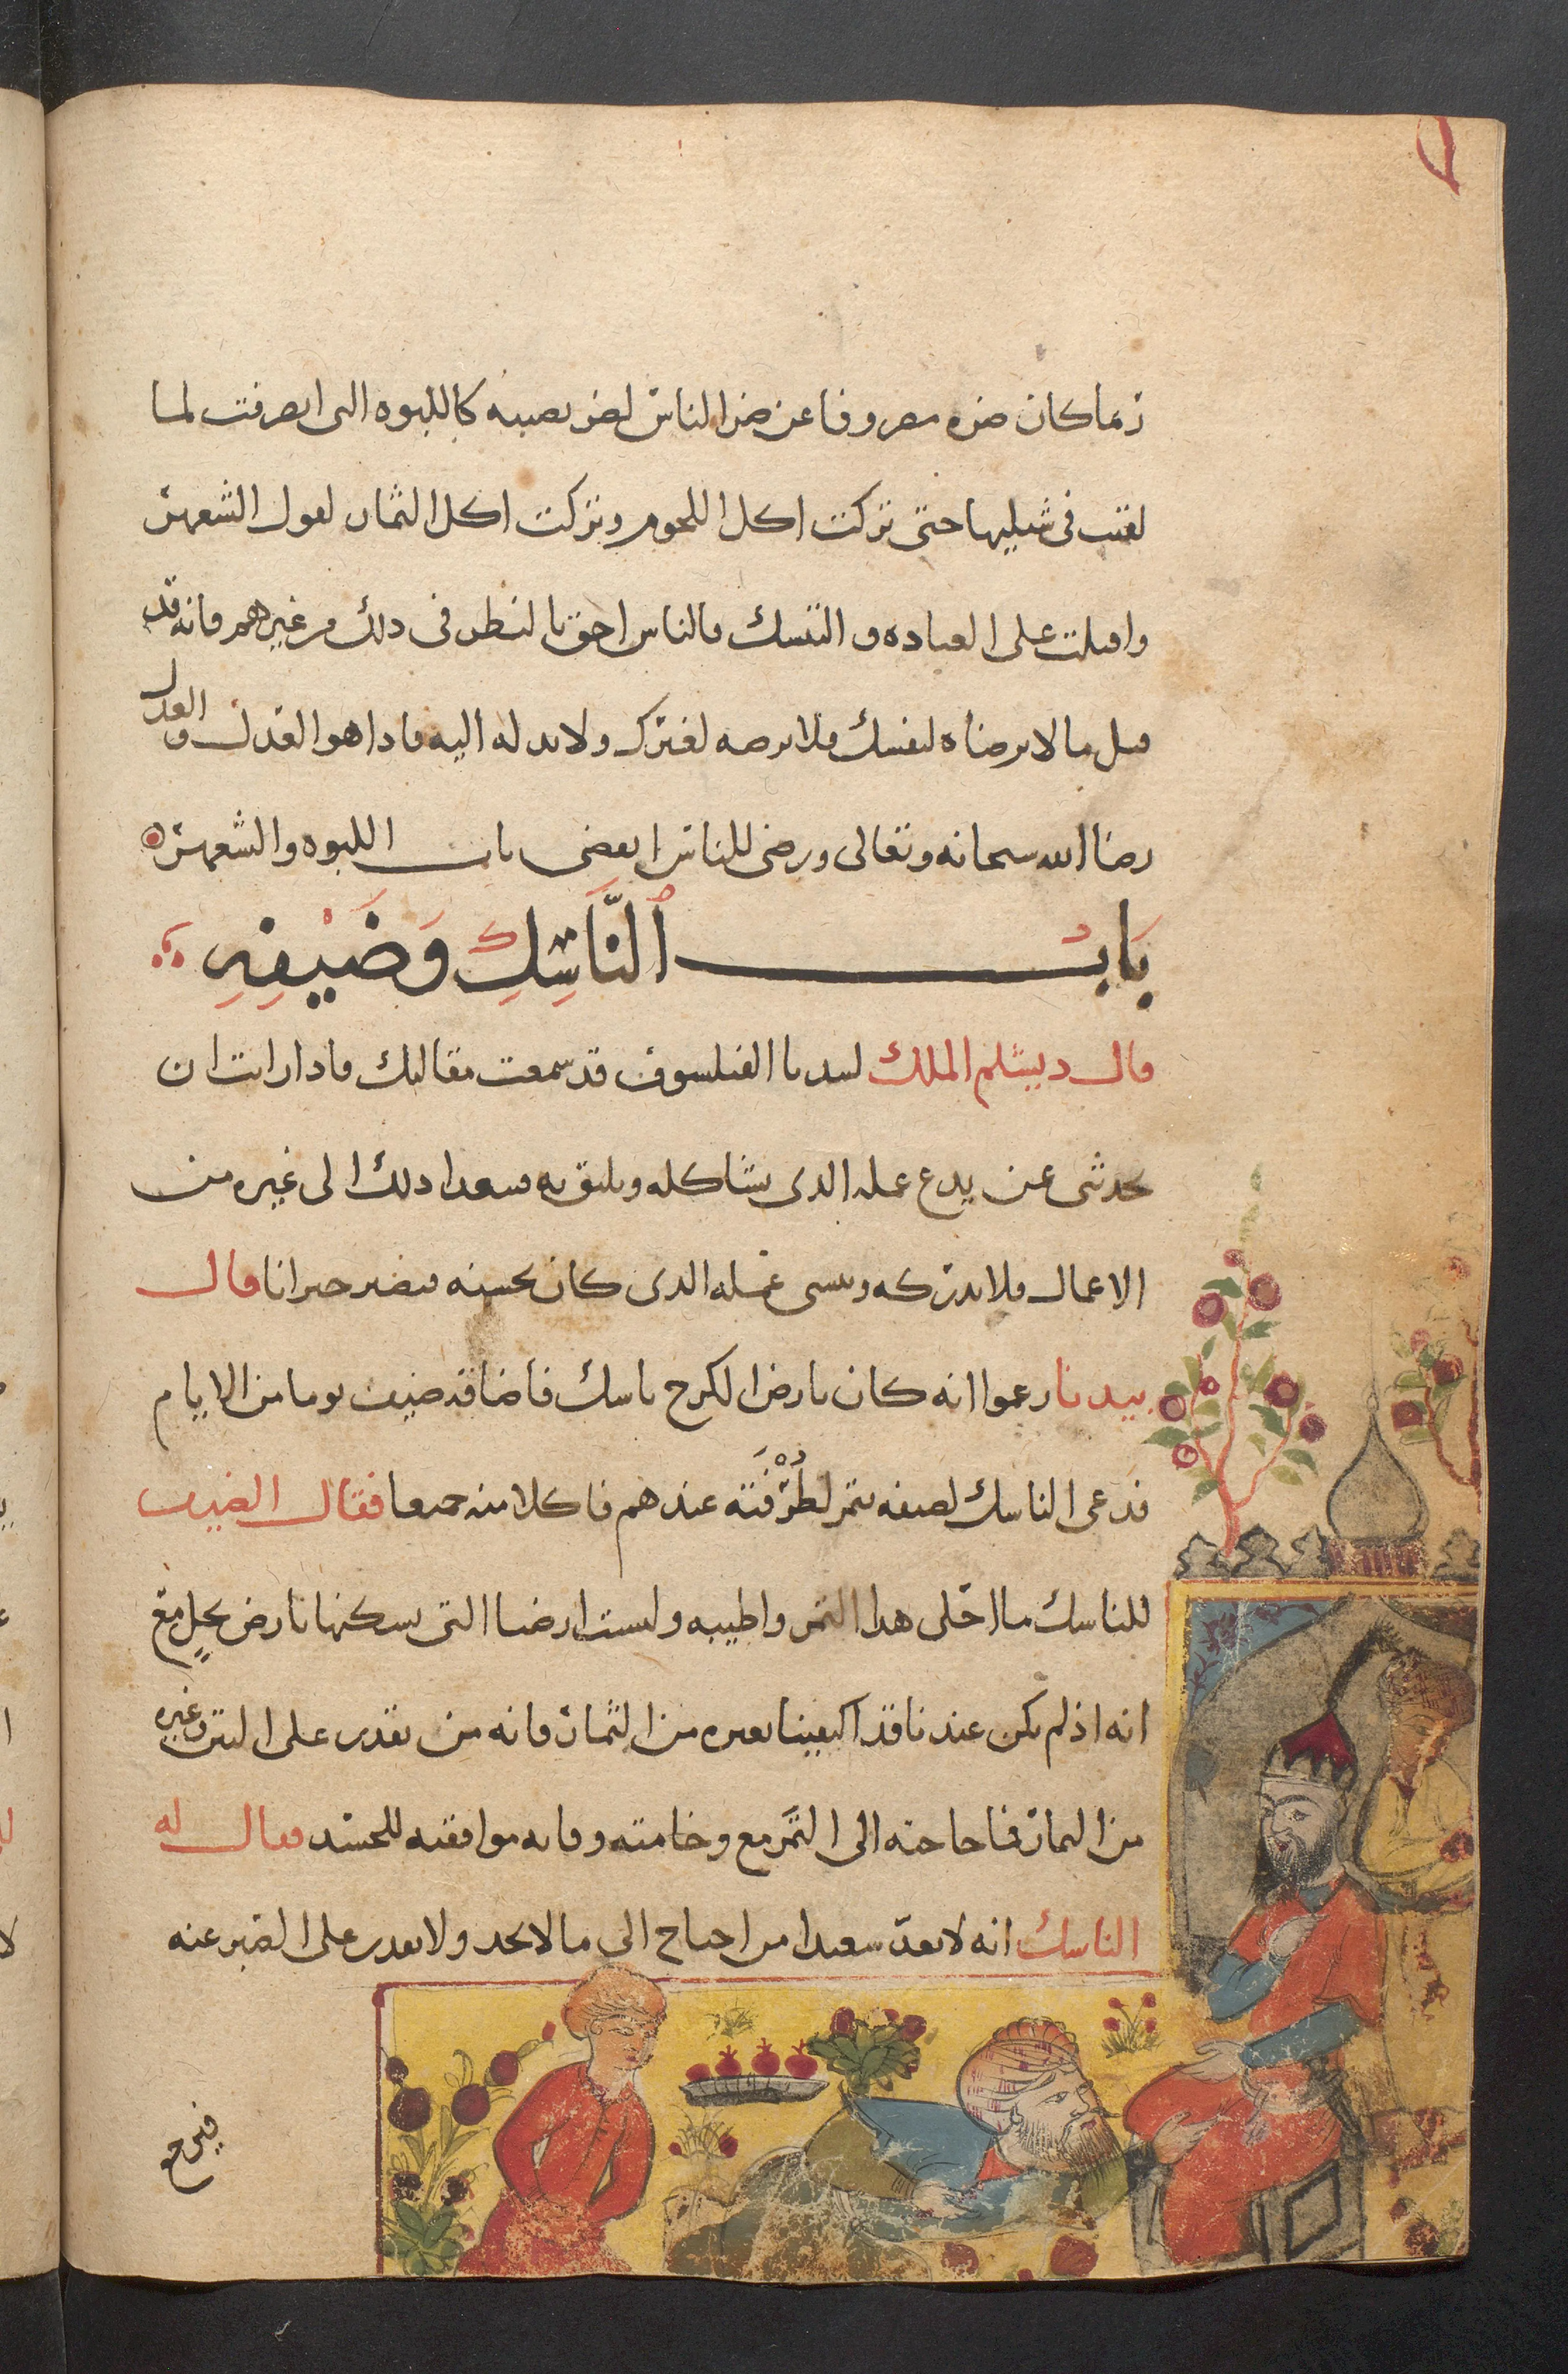 ربما كان ضره مصروفا عن ضر الناس لضر يصيبه كاللبوه التى انصرفت لما
لقيت فى شبليها حتى تركت اكل اللحوم وتركت اكل الثمار لقول الشعهر
واقبلت على العباده والتنسك فالناس احق بالنظر فى ذلك من غيرهم فانه قد
قيل ما لا ترضاه لنفسك فلا ترضه لغيرك ولا تدله اليه فاذا هو العدل و العدل
رضا الله سبحانه وتعالى ورضى للناس انقضى باب اللبوه والشعهر
بَابُ ٱلنَّاسِكِ وَضَيْفِهِ
قال دبشلم الملك لبيدبا الفيلسوف قد سمعت مقالتك فاذا رايت ان
تحدثنى عن يدع عمله الذى يشاكله ويليق به فيتعدا ذلك الى غيره من
الاعمال فلا يدركه وينسى عمله الذى كان يحسنه فيضير حيرانا قال
بيدبا زعموا انه كان بارض الكرخ ناسك فاضافه ضيف يوما من الايام
فدعى الناسك لضيفه بتمر لطُرْفَته عندهم فاكلا منه جميعا فقال الضيف
للناسك ما احلى هذا التمر واطيبه وليست ارضنا التى نسكنها بارض نخلٍ مع
انه اذ لم يكن عندنا قد اكتفينا بغيره من الثمار فانه من يقدر على التين وغيره
من الثمار فما حاجته الى التَّمر مع وخامته وقله موافقته للجسد فقال له
الناسك انه لا يعدّ سعيدا من احتاج الى ما لا يجد ولا يقدر على الصبر عنه